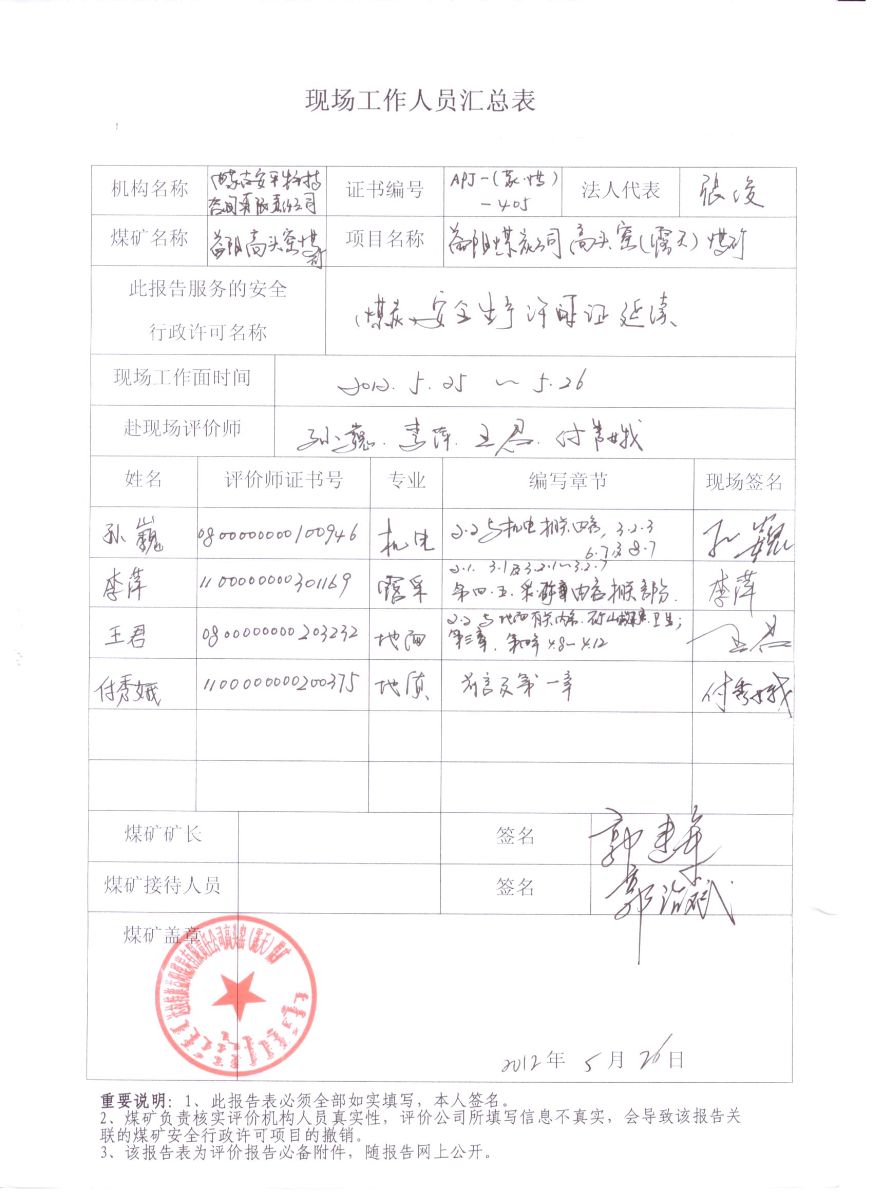 现场工作人员汇总表
机构名称 证书编号 APJ-(蒙·煤)-405 法人代表 張俊
煤矿名称 项目名称 高头窑(露天)煤矿
此报告服务的安全
行政许可名称 煤炭安全生产许可证延续
现场工作面时间 2012.5.25 ~ 5.26
赴现场评价师 孙巍. 李萍. 王君. 付秀娥
姓名 评价师证书号 专业 编写章节 现场签名
孙巍 0800000000100946 机电 2.2与机电相关内容, 3.2.3 孙巍
6.7及8.7
李萍 1100000000301169 露采 2.1. 3.1及3.2.1~3.2.7 李萍
第四.五. 相关部分.
王君 0800000000203232 2.2与地面有关内容. 矿山 卫生; 王君
第三章. 4.8~4.12
付秀娥 1100000000200375 地质 前言及第一章 付秀娥
煤矿矿长 签名
煤矿接待人员 签名
煤矿盖章
2012年 5月 26日
重要说明：1、此报告表必须全部如实填写，本人签名。
2、煤矿负责核实评价机构人员真实性，评价公司所填写信息不真实，会导致该报告关
联的煤矿安全行政许可项目的撤销。
3、该报告表为评价报告必备附件，随报告网上公开。